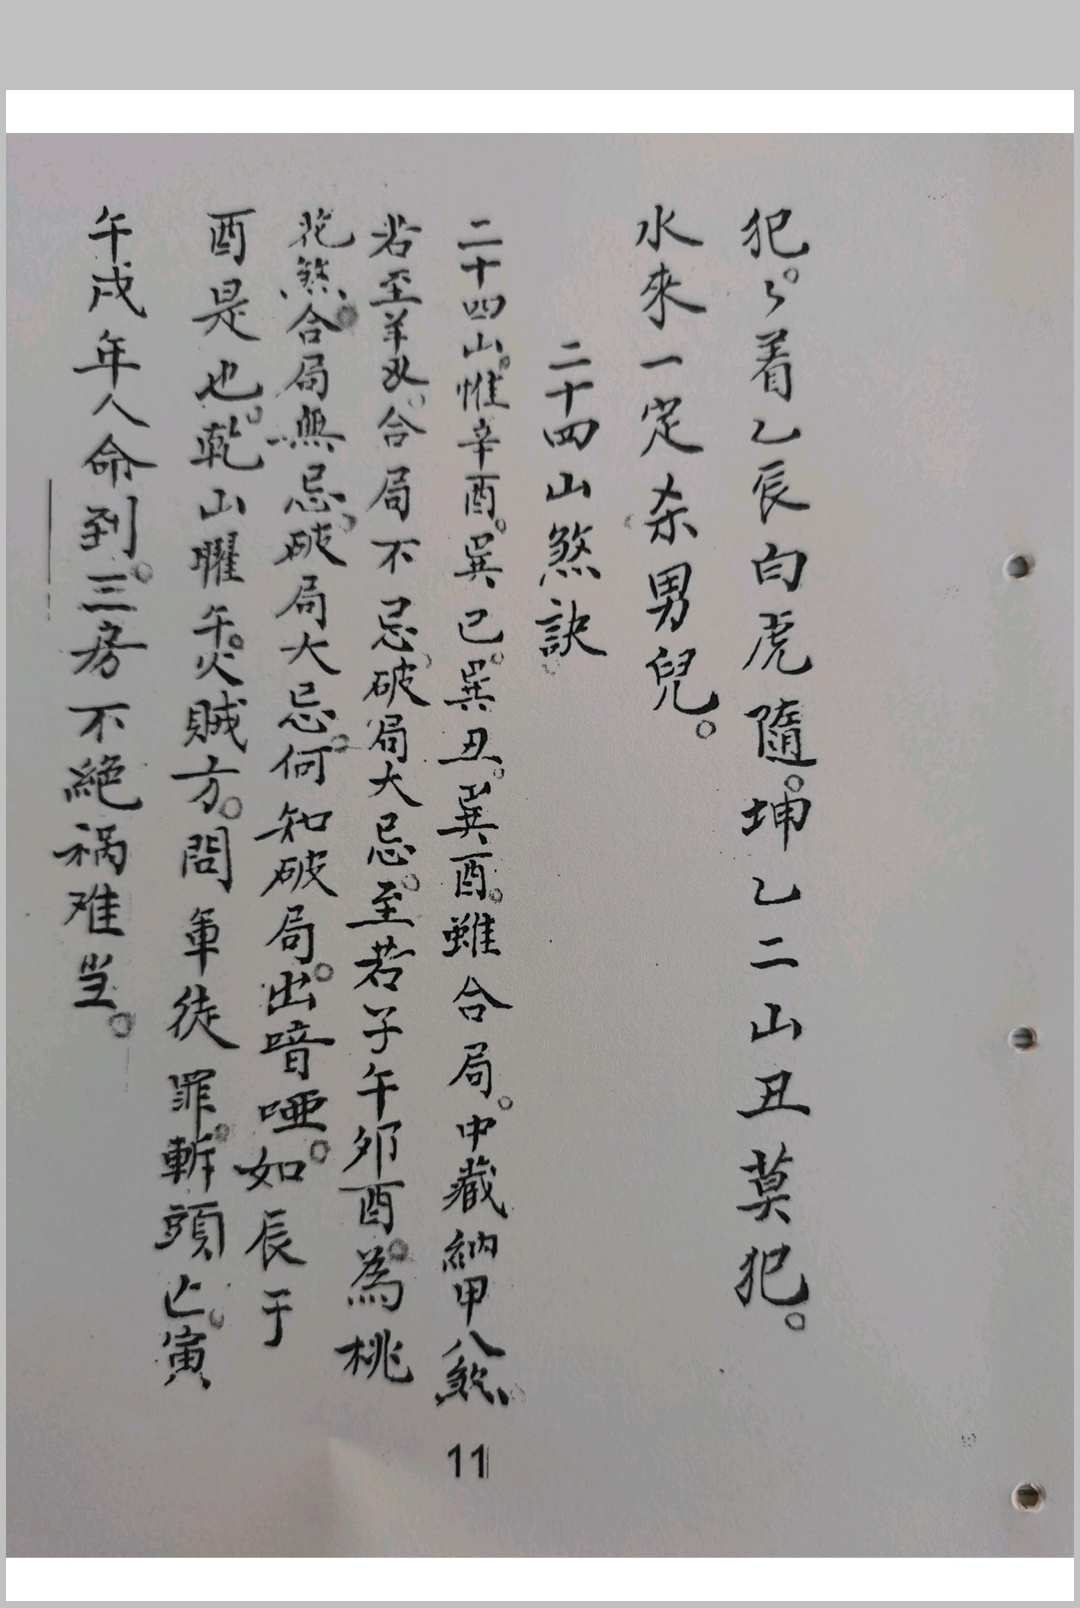 犯。々着乙辰白虎隨。坤乙二山丑莫犯。
水來一定杀男兒。
二十四山煞訣
二十四山。惟辛酉。巽巳。巽丑。巽酉。雖合局。中藏納甲八煞。
若至羊刄。合局不忌。破局大忌。至若子午夘酉。為桃
花煞。合局無忌。破局大忌。何知破局。出喑啞。如辰于
酉是也。乾山曜午。火贼方。問軍徒罪。斬頭亡。寅
午戌年人命到。三房不絕祸难当。
11